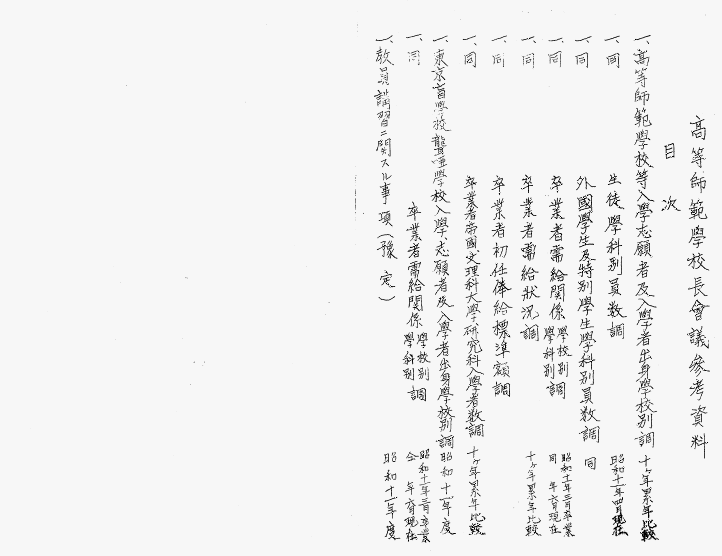 高等師範學校長會議參考資料
目次
一、高等師範學校等入學志願者及入學者出身學校別調 十ヶ年累年比較
一、同 生徒學科別員數調 昭和十一年四月現在
一、同 外國學生及特別學生學科別員數調 同
一、同 卒業者需給關係 學校別 學科別 調 昭和十一年三月卒業 同 年六月現在
一、同 卒業者需給狀況調 十ヶ年累年比較
一、同 卒業者初任俸給標準額調
一、同 卒業者帝國文理科大學研究科入學者數調 十ヶ年累年比較
一、東京盲學校聾啞學校入學志願者及入學者出身學校別調 昭和十一年度
一、同 卒業者需給關係 學校別 學科別 調 昭和十一年三月卒業 仝 年六月現在
一、教員講習ニ關スル事項(豫定) 昭和十一年度